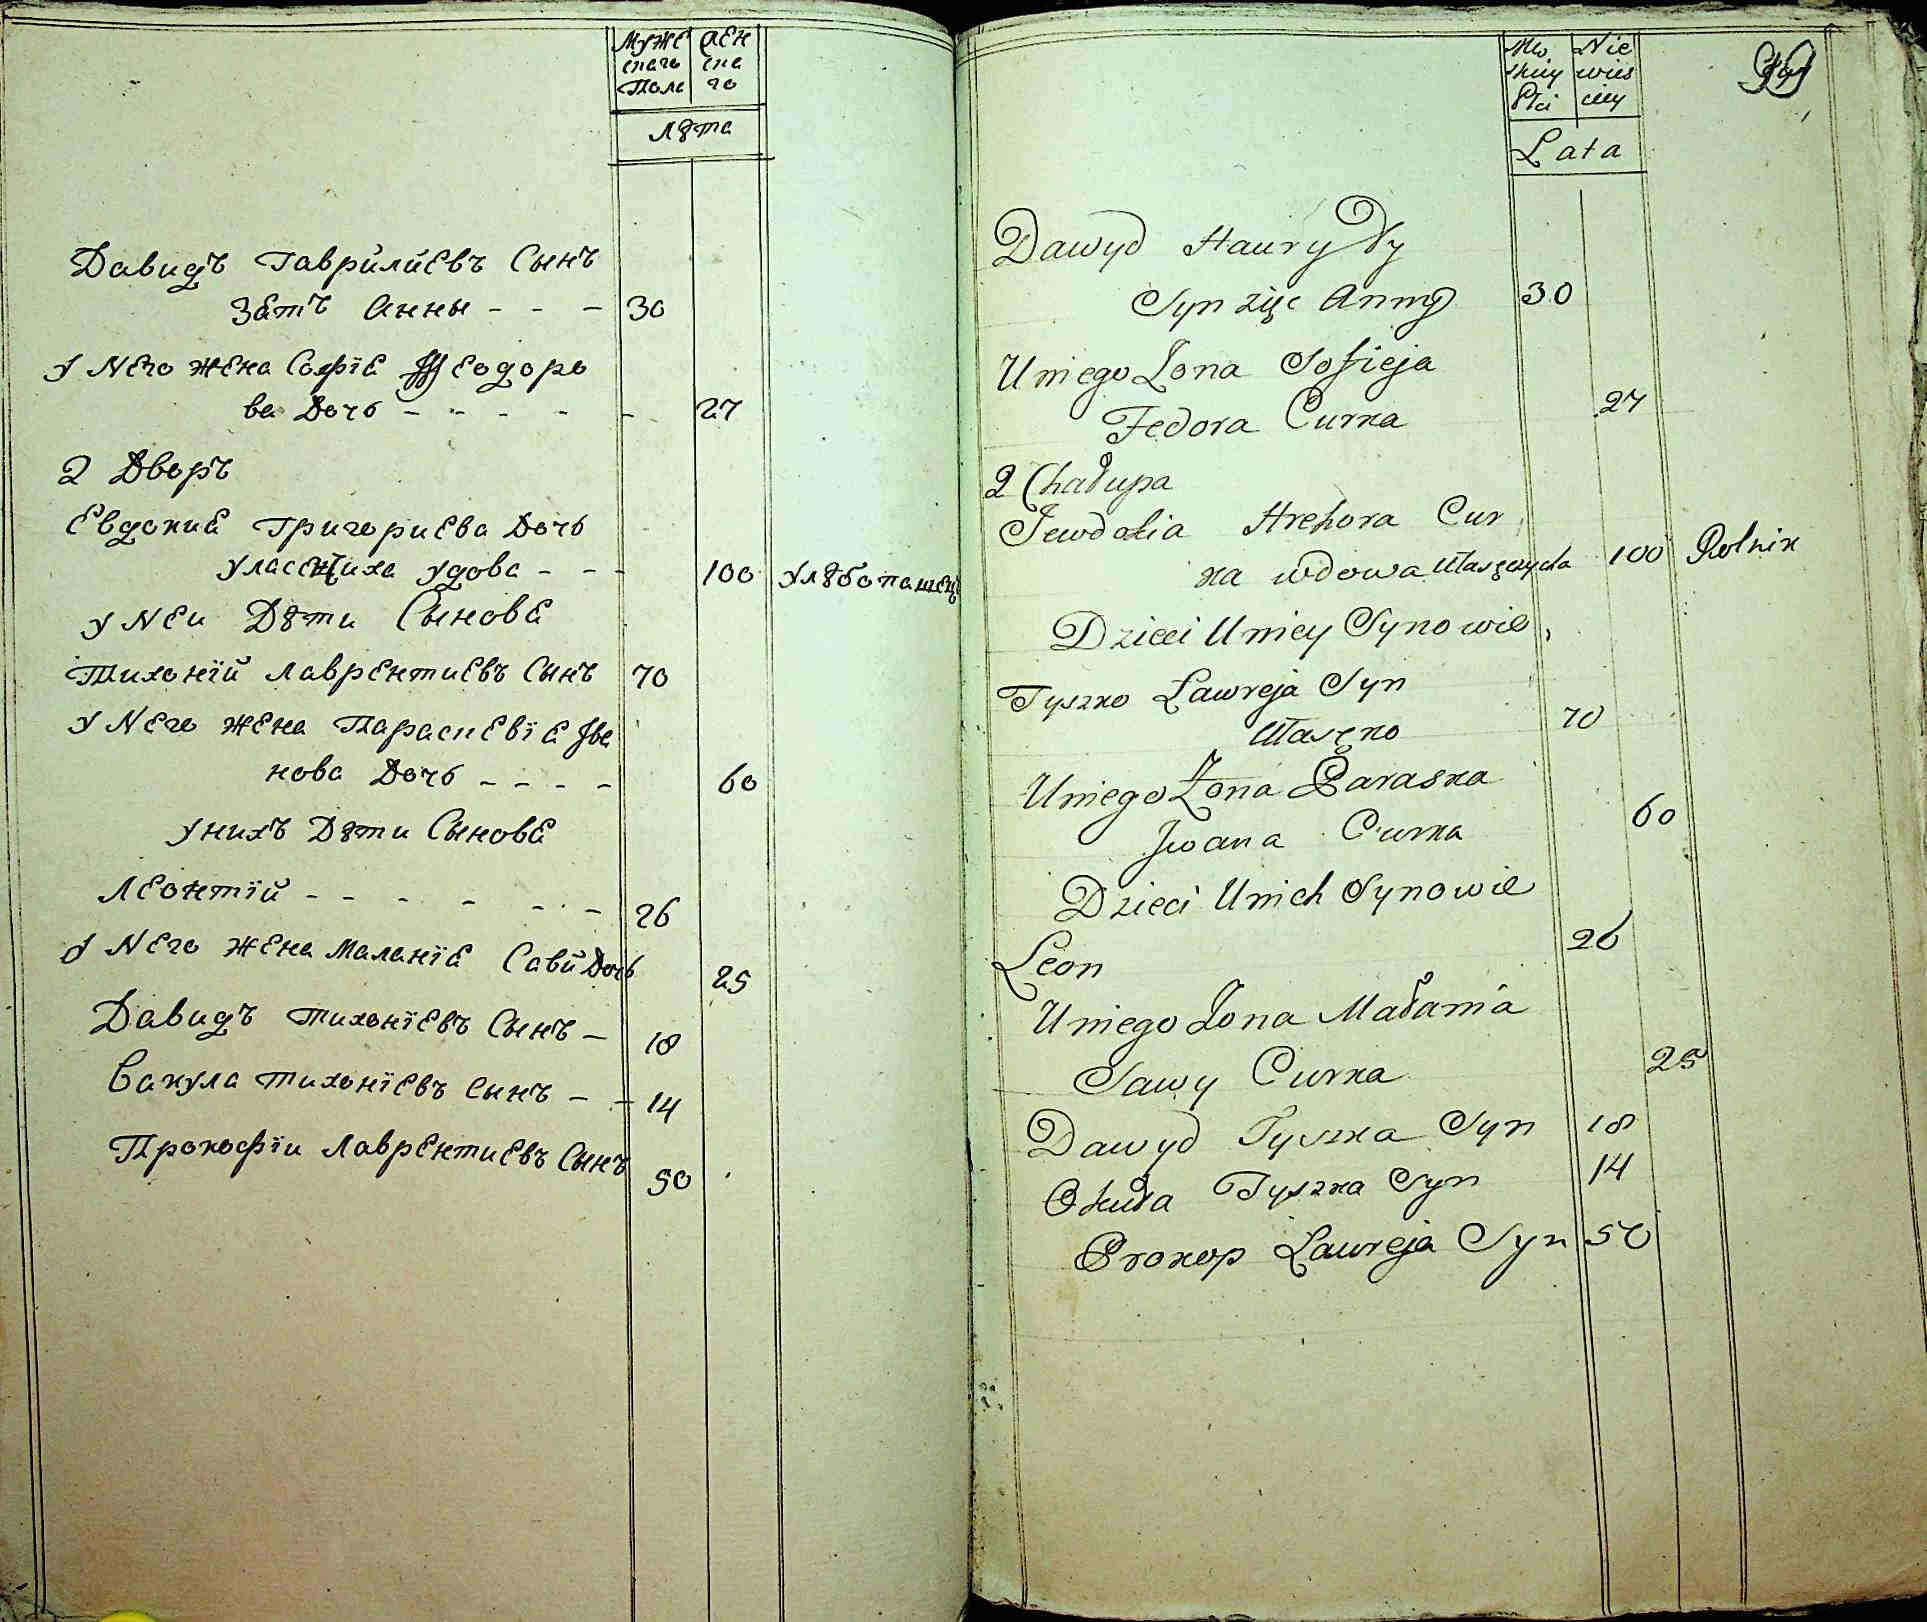 Муже жен
скаго ска
Полѣ го
Лѣта
Давидъ Гаврйлиевъ Сынъ
Зѣтъ Анны - - - 30
У Него жена Софїѣ Ѳеодоро
ва Дочь - - - - - 27
2 Дворъ
Евдокиѣ Григориева Дочь
Уласчиха удова - - - 100 Хлѣбопашец
у Неи Дѣти Сыновѣ
Тихонїй Лаврентиевъ Сынъ 70
У Него жена Параскевїѣ Ива
нова Дочь - - - - 60
у нихъ Дѣти Сыновѣ
Леонтїй - - - - - - 26
У Него жена Маланїѣ Савй Дочь 25
Давидъ Тихонїевъ Сынъ - 18
Вакула Тихонїевъ Сынъ - - 14
Прокофїи Лаврентиевъ Сынъ 50
Mę Nie
skiey wies
Płci ciey
Lata
Dawyd Hauryły
Syn zięc Anny 30
U niego Żona Sofieja
Fedora Curka 27
2 Chałupa
Jewdokia Hrehora Cur
ka wdowa Własczycha 100 Rolnik
Dzieci U niey Synowie
Tyszko Ławreja Syn
Własęko 70
U niego Żona Paraska
Jwana Curka 60
Dzieci U nich Synowie
Leon 26
U niego Żona Małania
Sawy Curka 25
Dawyd Tyszka Syn 18
Okuła Tyszka Syn 14
Prokop Ławreja Syn 50